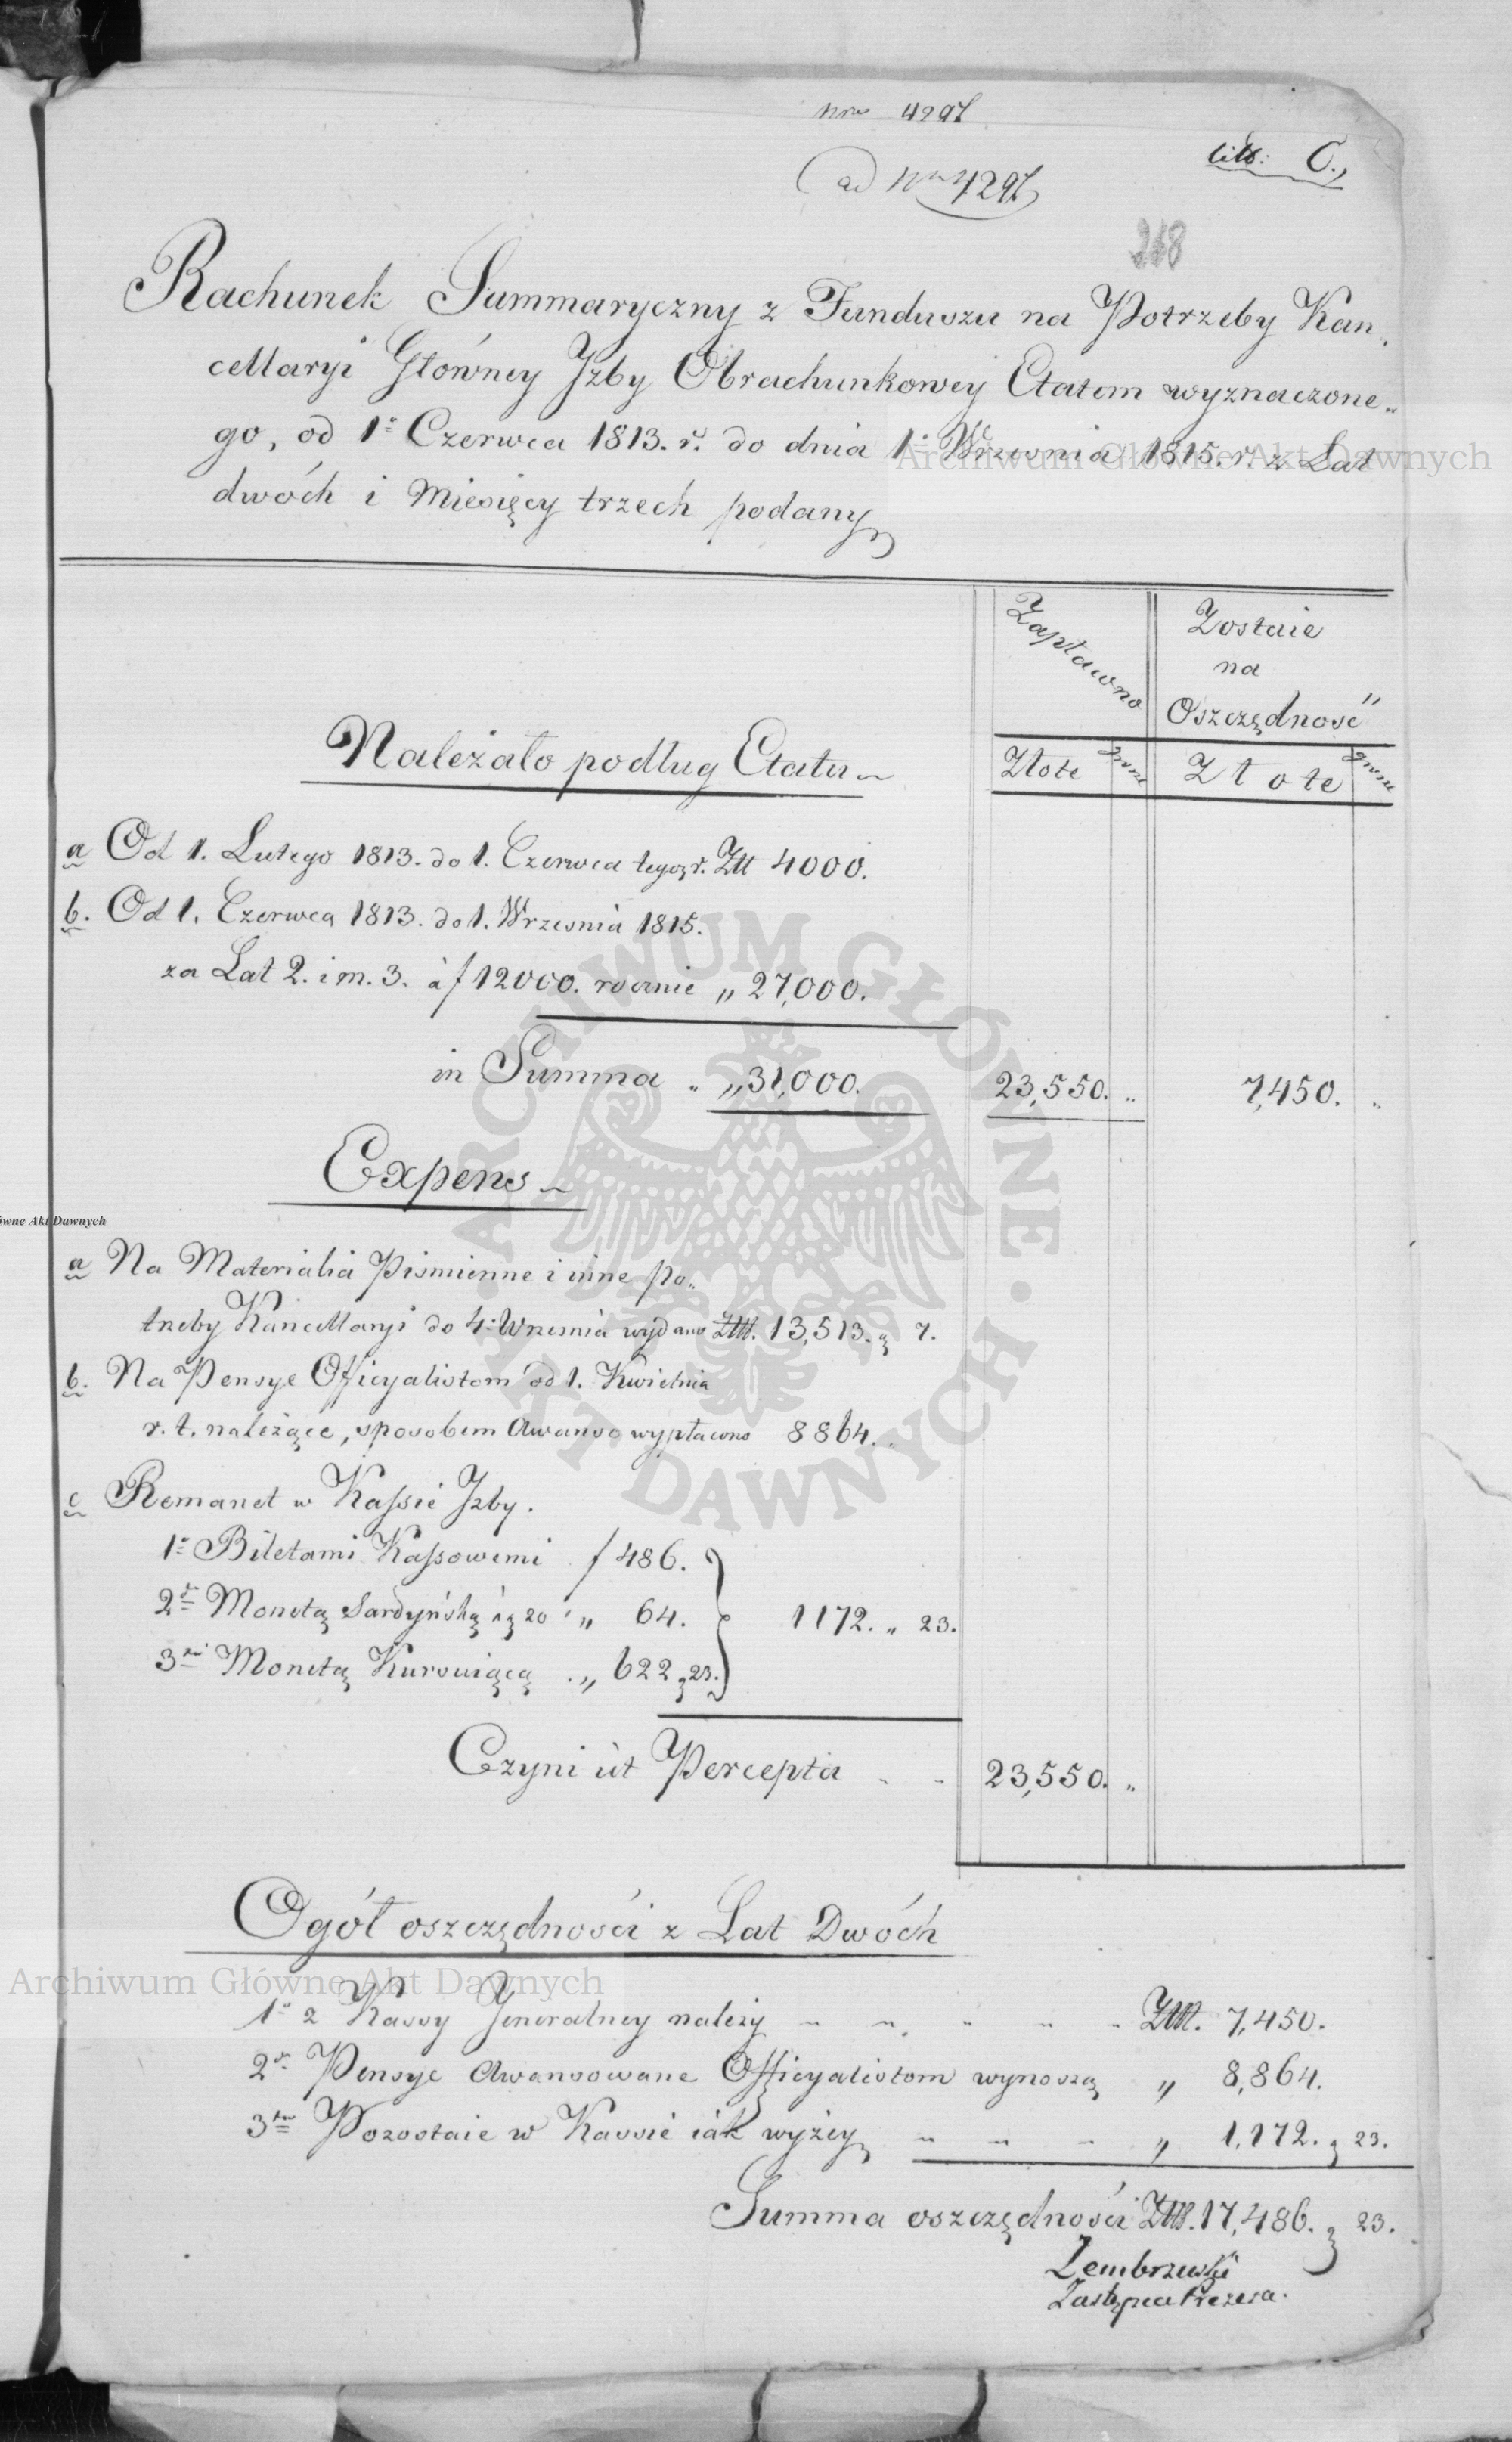 nro 4297
ad Nrm 4297
litt: C.,
218
Rachunek Summaryczny z Funduszu na Potrzeby Kan„
cellaryi Główney Jzby Obrachunkowey Etatem wyznaczone„
go, od 1o Czerwca 1813. r. do dnia 1o Wrzesnia 1815. r. z Lat
dwóch i Miesięcy trzech podany
Zapłacono
Zostaie
na
Oszczędność
Złote
grosze
Złote
grosze
Należało podług Etatu
a Od 1. Lutego 1813. do 1. Czerwca tegoż r. Złł 4000.
b. Od 1. Czerwca 1813. do 1. Wrzesnia 1815.
za Lat 2. i m. 3. à f 12000. rocznie „ 27,000.
in Summa „ „ 31,000. 23,550. „ 7,450. „
Expens
a Na Materialia Pismienne i inne po„
trzeby Kancellaryi do 4o Wrzesnia wydano Złł. 13,513. g 7.
b. Na Pensye Officyalistom od 1. Kwietnia
r. t. należące, sposobem Awansu wypłacono 8864. „
c Remanet w Kassie Jzby.
1o Biletami Kassowemi f 486.
2do Monetą Sardyńską à g 20 „ 64.
1172. „ 23.
3tio Monetą Kursuiącą „ 622 g 23.
Czyni ut Percepta 23,550. „
Ogół oszczędności z Lat Dwóch
1o z Kassy Jeneralney należy Złł. 7,450.
2do Pensye Awansowane Officyalistom wynoszą „ 8,864.
3tio Pozostaie w Kassie iak wyżey „ 1,172. g 23.
Summa oszczędności Złł. 17,486. g 23.
Zembrzuski
Zastępca Prezesa.
Archiwum Główne Akt Dawnych
ówne Akt Dawnych
ARCHIWUM GŁÓWNE · AKT DAWNYCH ·
Archiwum Główne Akt Dawnych